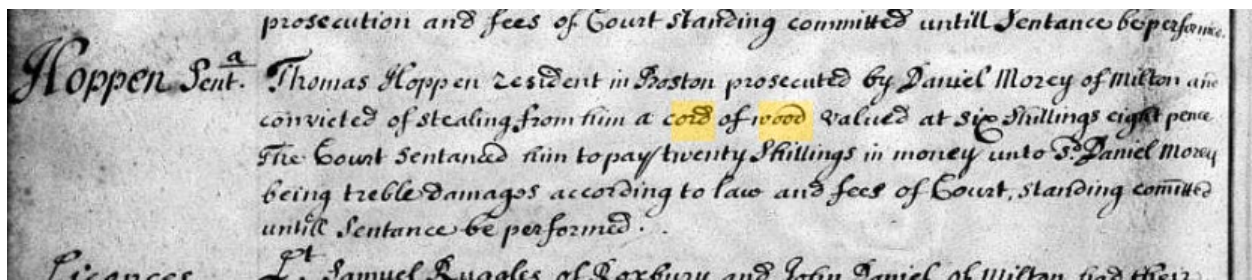 prosecution and fees of Court standing committed untill Sentance be performed.
Hoppen Senta.
Thomas Hoppen resident in Boston prosecuted by Daniel Morey of Milton and
convicted of stealing from him a cord of wood valued at six shillings eight pence
The Court Sentanced him to pay twenty Shillings in money unto Sd. Daniel Morey
being treble damages according to law and fees of Court, standing comitted
untill Sentance be performed.
Licances
Lt. Samuel Ruggles of Roxbury and John Daniel of Milton had their